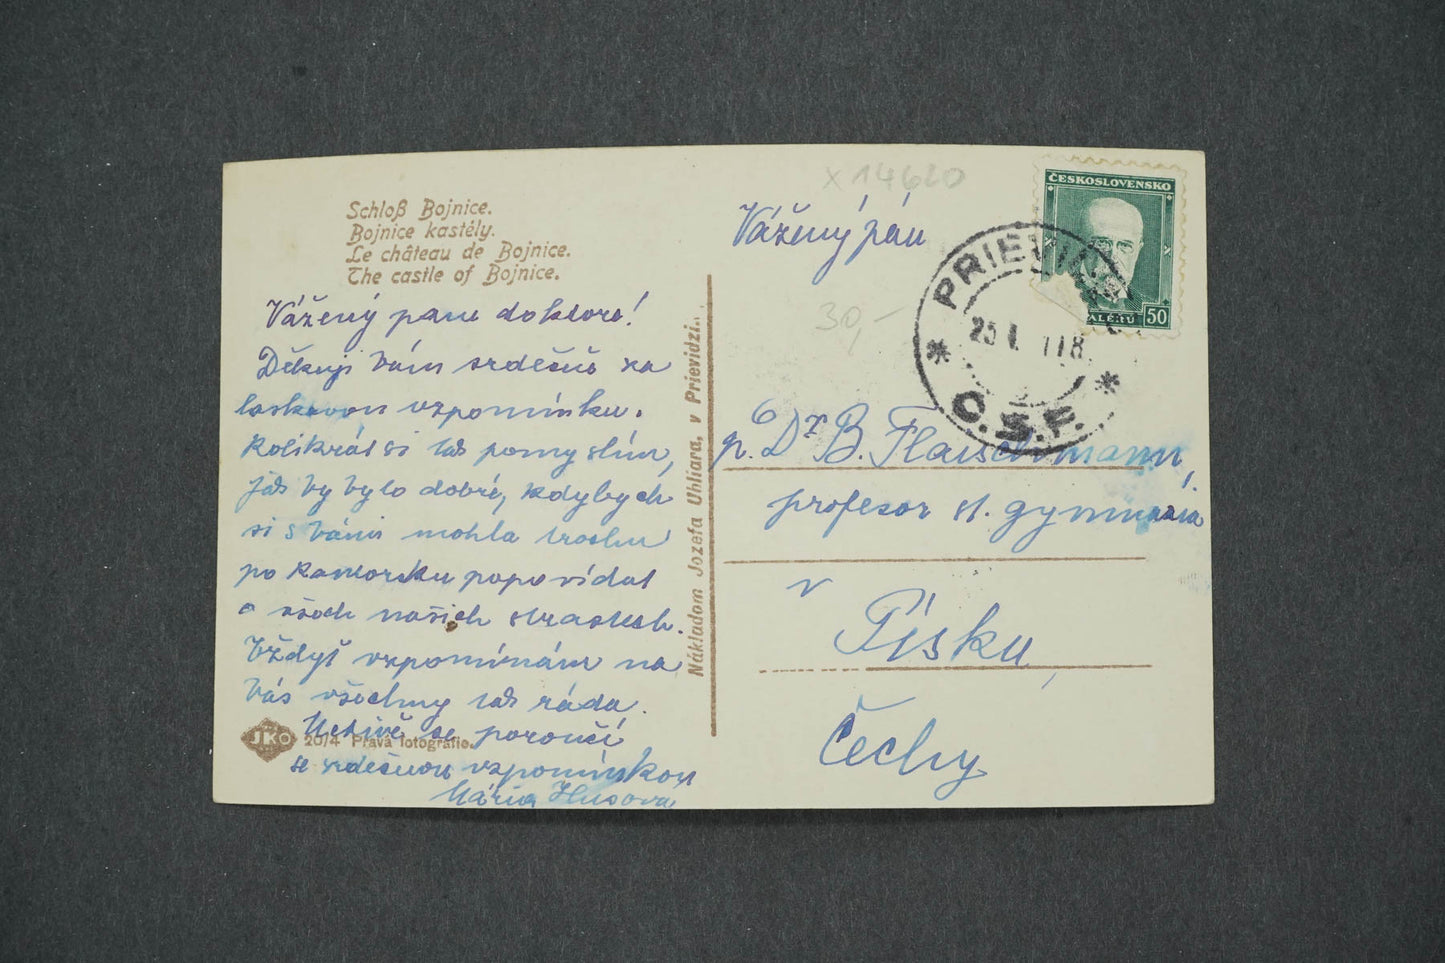 Schloß Bojnice.
Bojnice kastély.
Le château de Bojnice.
The castle of Bojnice.
Vážený pane doktore!
Děkuji Vám srdečně za
laskavou vzpomínku.
Kolikrát si tak pomyslím,
jak by bylo dobré, kdybych
si s Vámi mohla trochu
po kantorsku popovídat
o všech našich strastech.
Vždyť vzpomínám na
Vás všechny tak ráda.
Uctivě se poroučí
se srdečnou vzpomínkou
Mária Husova
JKO 20/4 Pravá fotografie.
Nákladom Jozefa Uhliara, v Prievidzi.
x 14620
Vážený pán
30,-
ČESKOSLOVENSKO
50
PRIEVI
25 I.
Č.S.P.
p. Dr B. Flaischmann,
profesor st. gymnázia
v
Písku,
Čechy